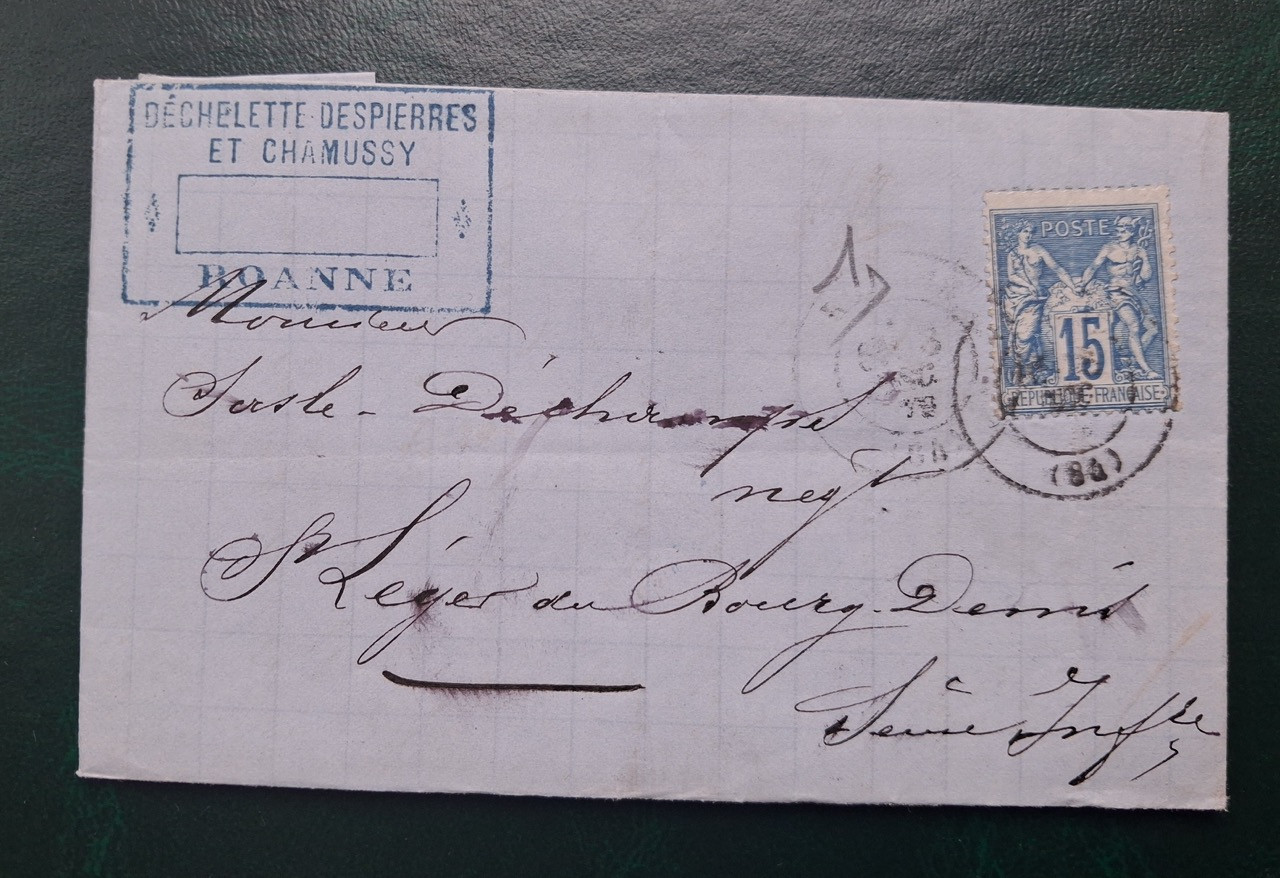 DÉCHELETTE-DESPIERRES
ET CHAMUSSY
ROANNE
POSTE
15
REPUBLIQUE FRANÇAISE
(84)
Monsieur
Déchamps
negt
St Léger du Bourg-Denis
Seine Infre